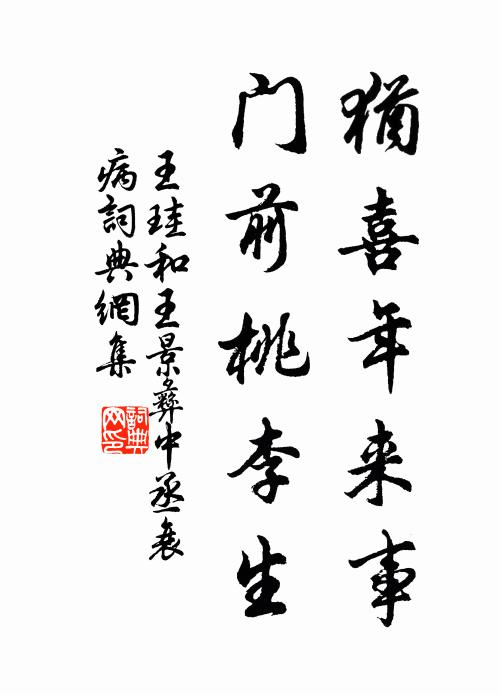 猶喜年来事
门前桃李生
王珪和王景彝中丞衰
病詞典網集
詞典
网印